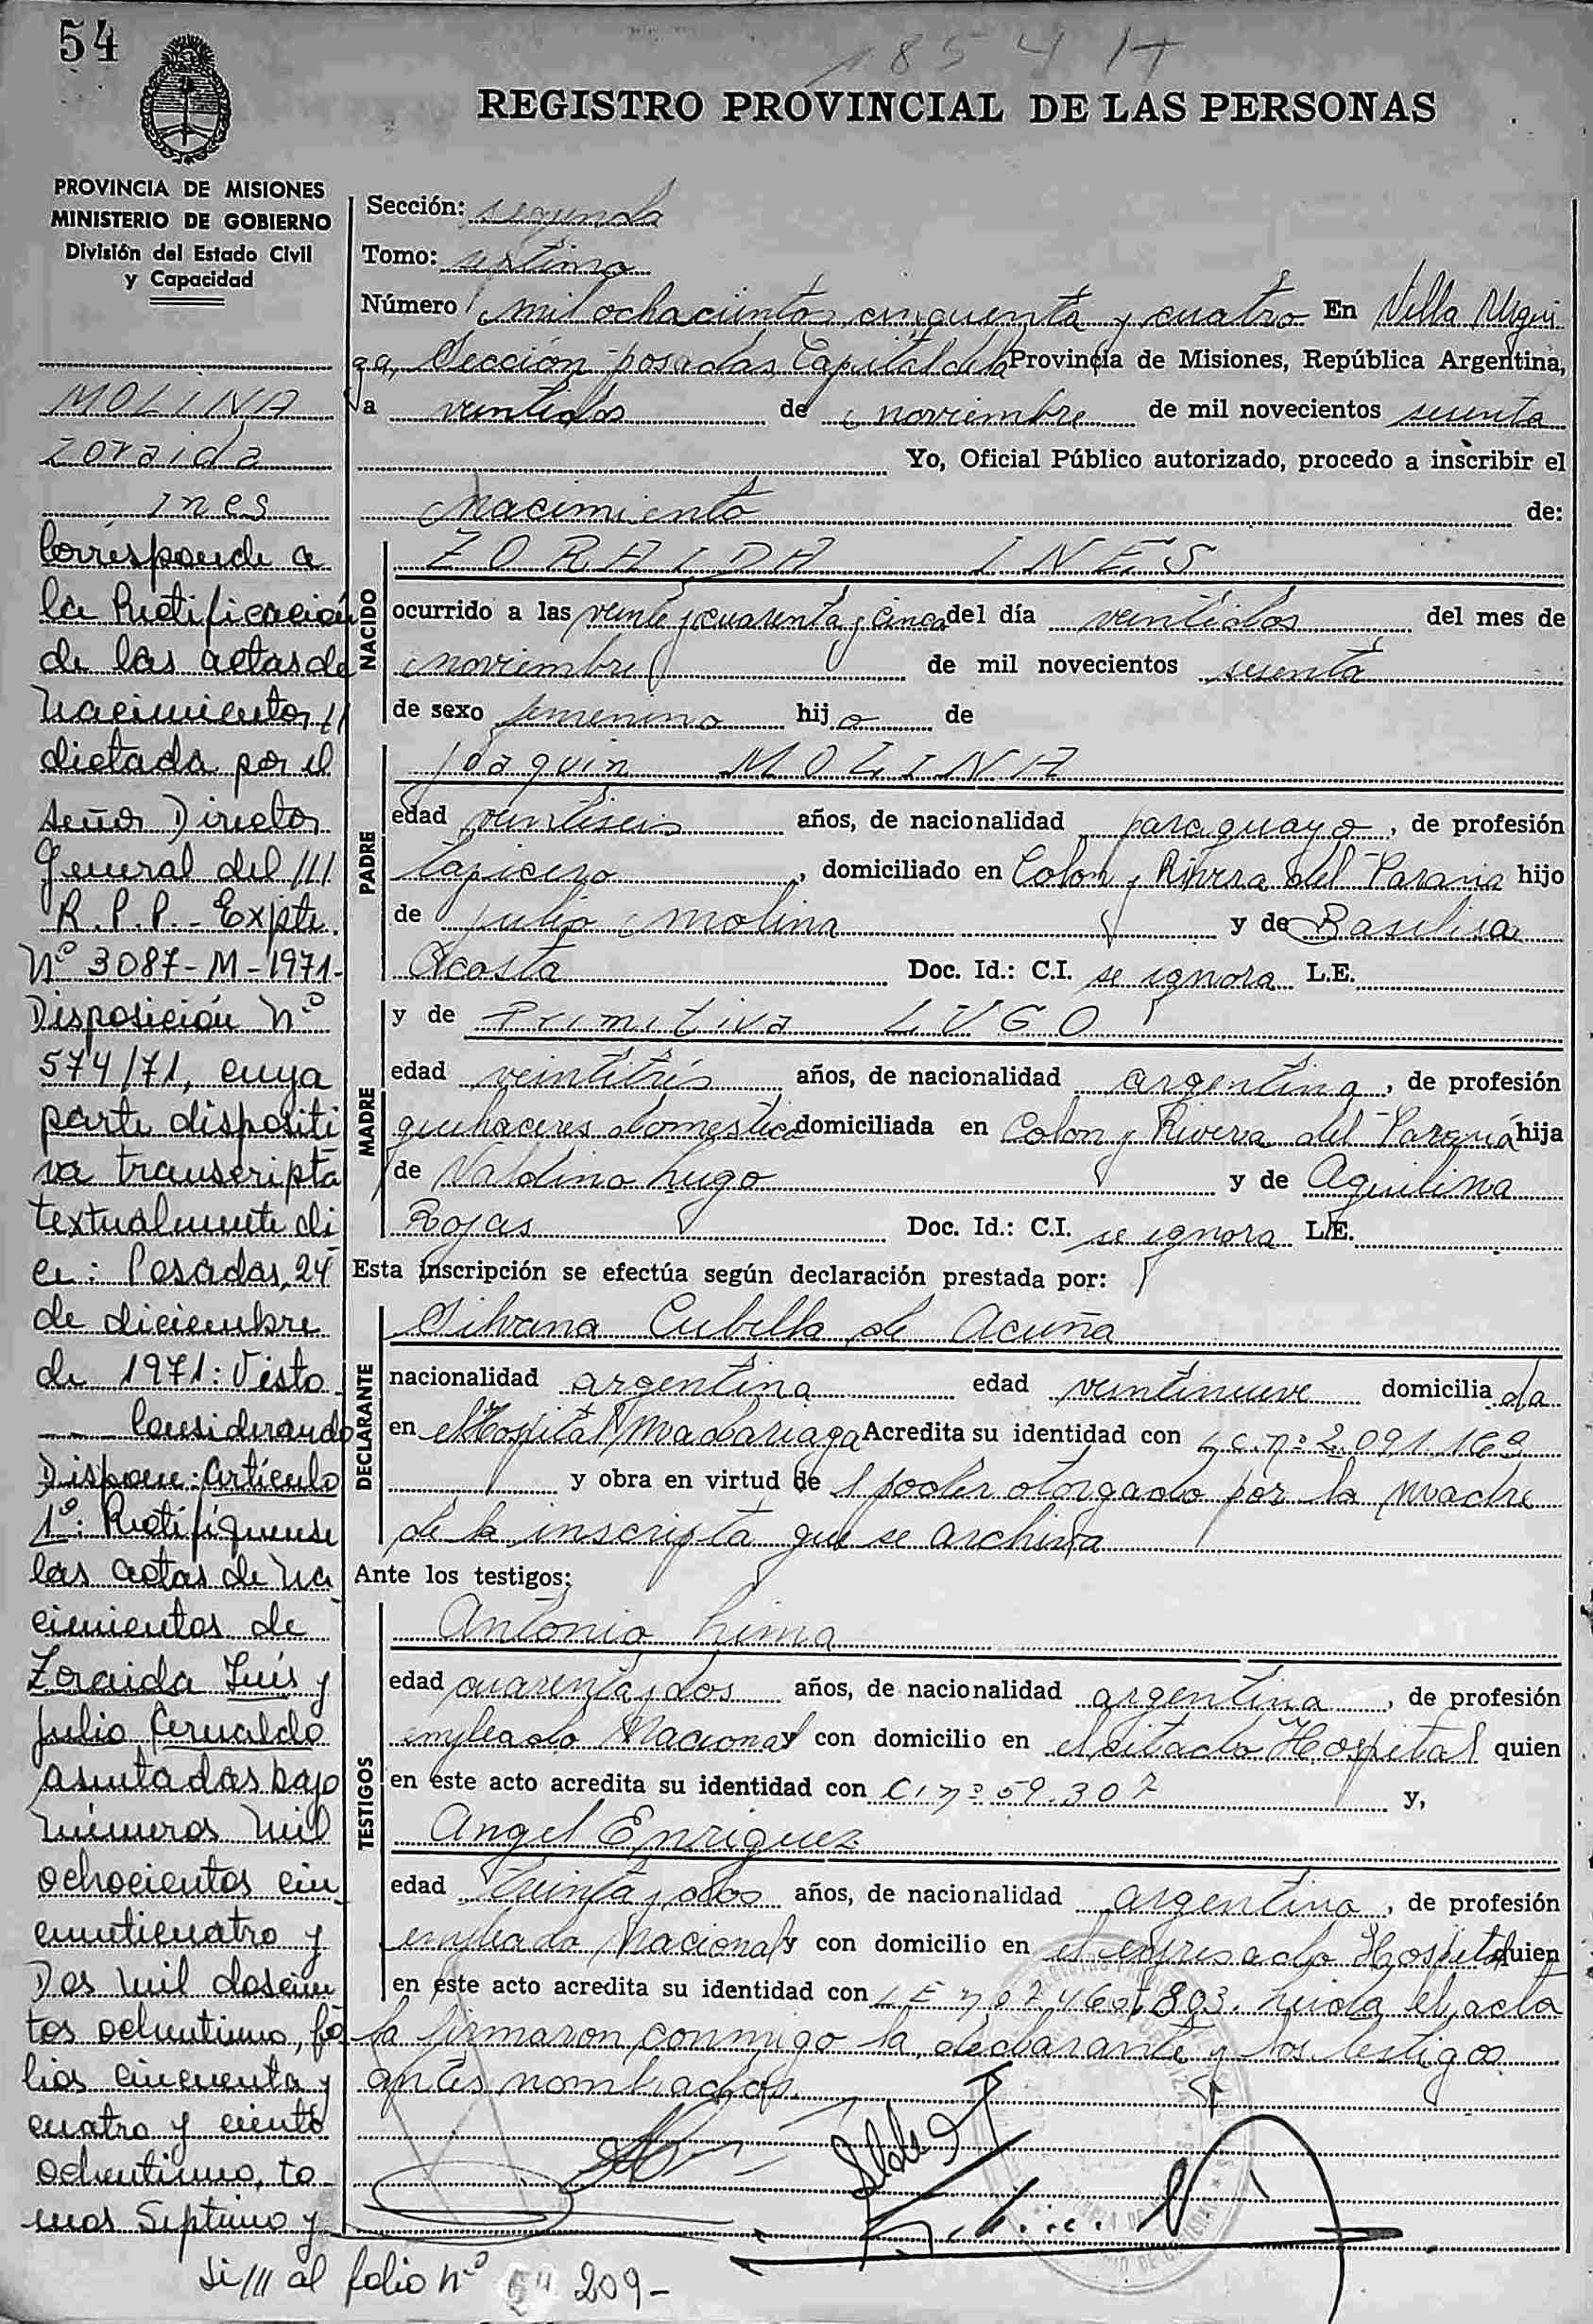 54
1854 / T
REGISTRO PROVINCIAL DE LAS PERSONAS
PROVINCIA DE MISIONES
MINISTERIO DE GOBIERNO
División del Estado Civil
y Capacidad
MOLINA
Zoraida
Ines
Corresponde a
la Rectificación
de las actas de
nacimientos //
dictada por el
señor Director
General del ///
R.P.P. - Expte.
Nº 3087-M-1971-
Disposición Nº
574/71, cuya
parte dispositi
va transcripta
textualmente di
ce: Posadas, 24
de diciembre
de 1971: Visto
Considerando
Dispone: Artículo
1º: Rectifíquense
las actas de na
cimientos de
Zoraida Inés y
Julio Arnaldo
asentadas bajo
números mil
ochocientos cin
cuenticuatro y
Dos mil doscien
tos ochentiuno, fo
lios cincuenta y
cuatro y ciento
ochentiuno, to
mos Septimo y
Sección: segunda
Tomo: septimo
Número mil ochocientos cincuenta y cuatro En Villa Urqui
za, Sección posadas Capital de la Provincia de Misiones, República Argentina,
a veintidos de noviembre de mil novecientos sesenta
Yo, Oficial Público autorizado, procedo a inscribir el
Nacimiento de:
NACIDO
ZORAIDA INES
ocurrido a las veinte y cuarenta y cinco del día veintidos del mes de
noviembre de mil novecientos sesenta
de sexo femenino hija de
PADRE
Joaquin MOLINA
edad veintiseis años, de nacionalidad paraguayo, de profesión
tapicero, domiciliado en Colon y Rivera del Parana hijo
de Julio Molina y de Basilisa
Acosta Doc. Id.: C.I. se ignora L.E.
MADRE
y de Primitiva LUGO
edad veintitrés años, de nacionalidad argentina, de profesión
quehaceres domestico domiciliada en Colon y Rivera del Paraná hija
de Valdino Lugo y de Aquilina
Rojas Doc. Id.: C.I. se ignora L.E.
Esta inscripción se efectúa según declaración prestada por:
DECLARANTE
Silvana Cubilla de Acuña
nacionalidad argentina edad veintinueve domiciliada
en el Hospital Madariaga Acredita su identidad con L.C. nº 2.091.162
y obra en virtud de l poder otorgado por la madre
de la inscripta que se archiva
Ante los testigos:
TESTIGOS
Antonio Lima
edad cuarenta y dos años, de nacionalidad argentina, de profesión
empleado Nacional y con domicilio en el citado Hospital quien
en este acto acredita su identidad con C.I nº 59.307 y,
Angel Enriquez
edad treinta y dos años, de nacionalidad argentina, de profesión
empleado Nacional y con domicilio en el expresado Hospital quien
en este acto acredita su identidad con L E nº 7.460.803. Leida el acta
la firmaron conmigo la declarante y los testigos
antes nombrados
Si /// al folio nº 209-